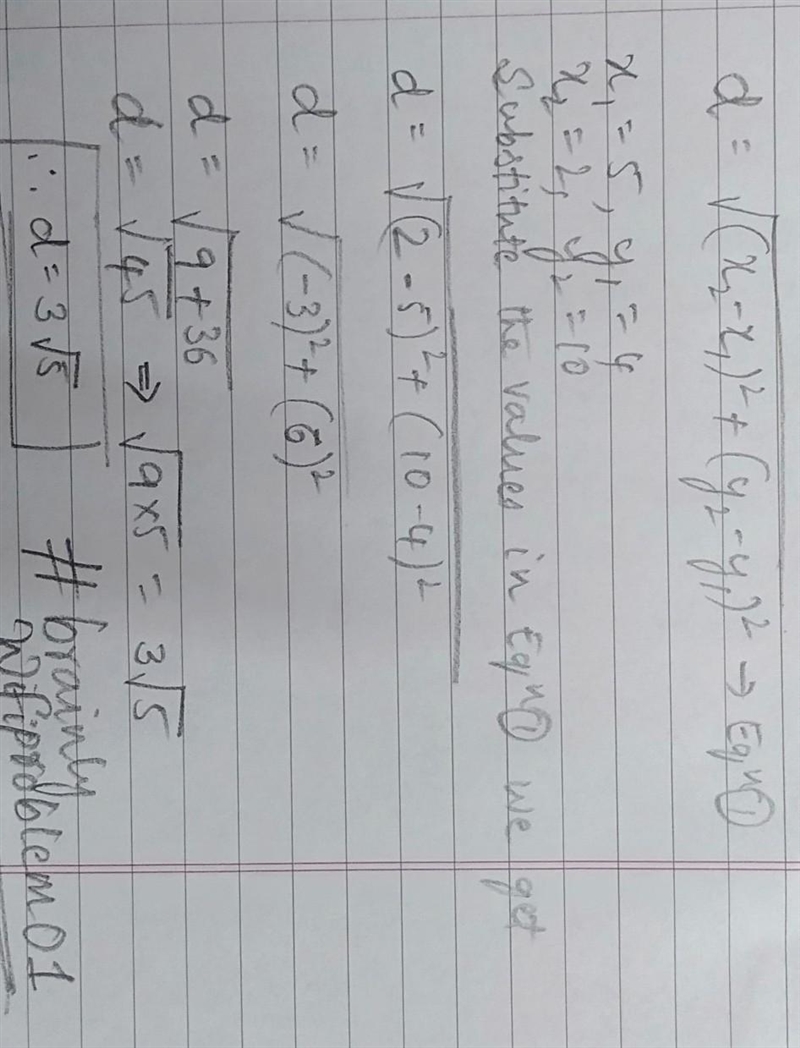 d = √(x₂ - x₁)² + (y₂ - y₁)² → Eqⁿ①
x₁ = 5, y₁ = 4
x₂ = 2, y₂ = 10
Substitute the values in Eqⁿ① we get
d = √(2 - 5)² + (10 - 4)²
d = √(-3)² + (6)²
d = √9 + 36
d = √45 ⇒ √9×5 = 3√5
∴ d = 3√5 #brainly